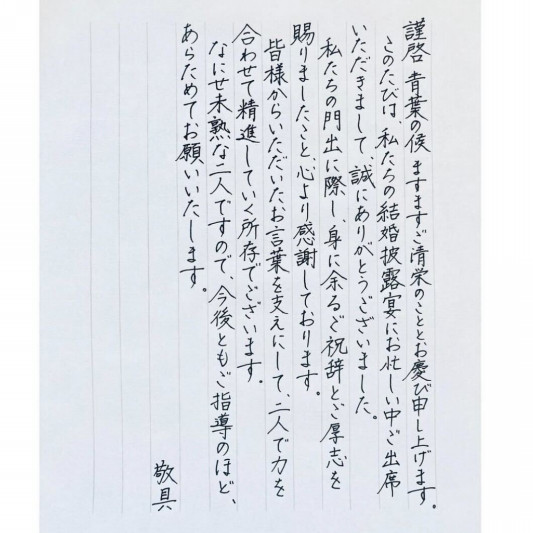 謹啓 青葉の候 ますますご清栄のこととお慶び申し上げます。
このたびは、私たちの結婚披露宴にお忙しい中ご出席
いただきまして、誠にありがとうございました。
私たちの門出に際し、身に余るご祝辞とご厚志を
賜りましたこと、心より感謝しております。
皆様からいただいたお言葉を支えにして、二人で力を
合わせて精進していく所存でございます。
なにせ未熟な二人ですので、今後ともご指導のほど、
あらためてお願いいたします。
敬具